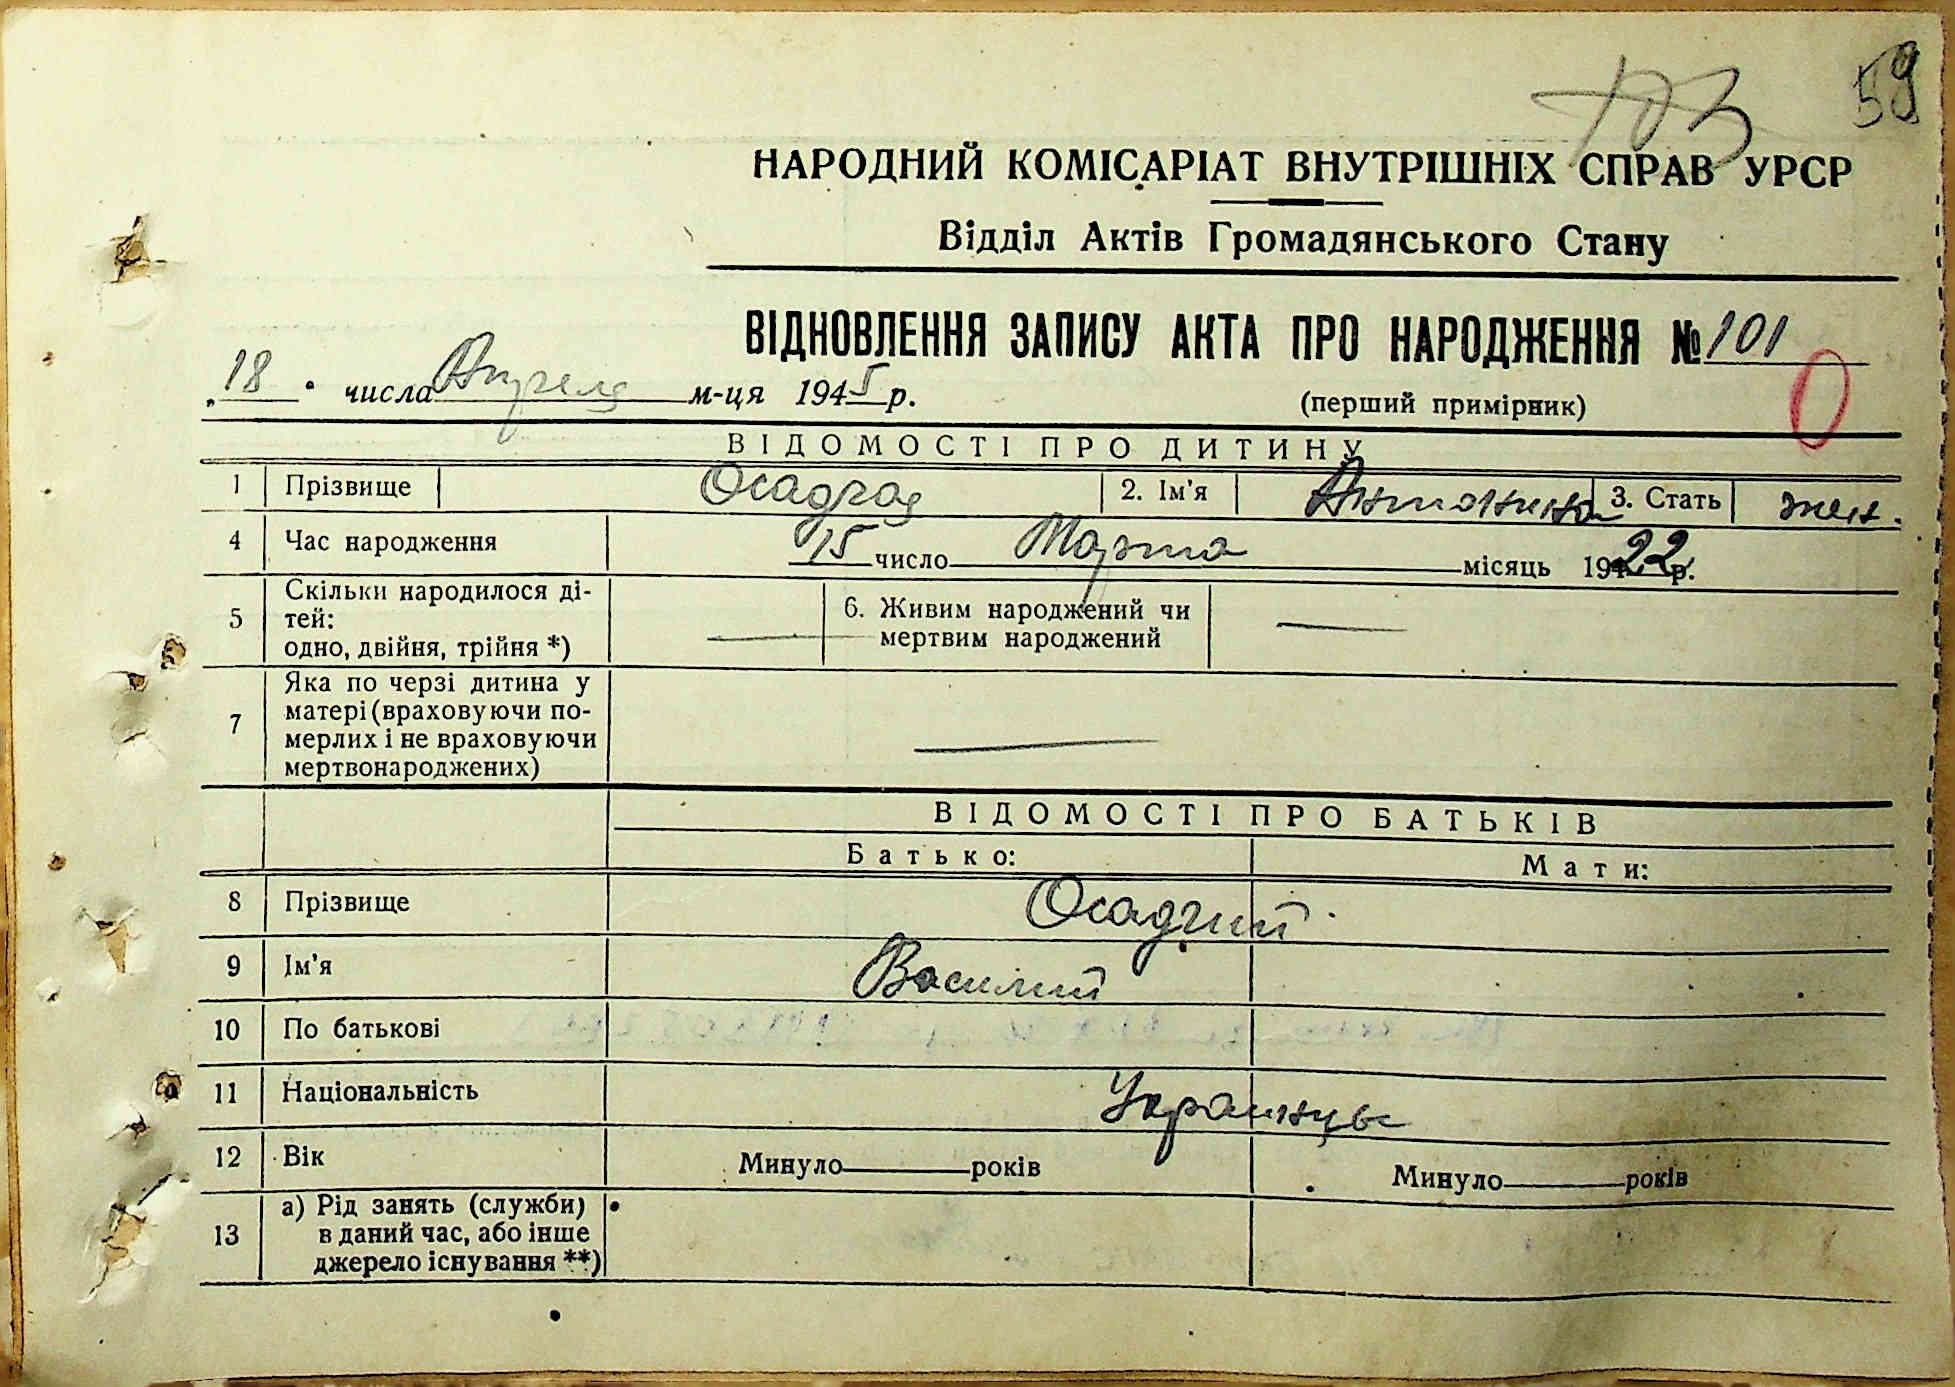 59
НАРОДНИЙ КОМІСАРІАТ ВНУТРІШНІХ СПРАВ УРСР
Відділ Актів Громадянського Стану
ВІДНОВЛЕННЯ ЗАПИСУ АКТА ПРО НАРОДЖЕННЯ № 101
„18" числа Апреля м-ця 1945 р.
(перший примірник)
0
ВІДОМОСТІ ПРО ДИТИНУ
1 Прізвище Осадчая 2. Ім'я Антонина 3. Стать жен.
4 Час народження 15 число Марта місяць 1922 р.
5 Скільки народилося ді-
тей:
одно, двійня, трійня *) — 6. Живим народжений чи
мертвим народжений —
7 Яка по черзі дитина у
матері (враховуючи по-
мерлих і не враховуючи
мертвонароджених) —
ВІДОМОСТІ ПРО БАТЬКІВ
Батько: Мати:
8 Прізвище Осадчий
9 Ім'я Василий
10 По батькові
11 Національність Украинцы
12 Вік Минуло років Минуло років
13 а) Рід занять (служби)
в даний час, або інше
джерело існування **)